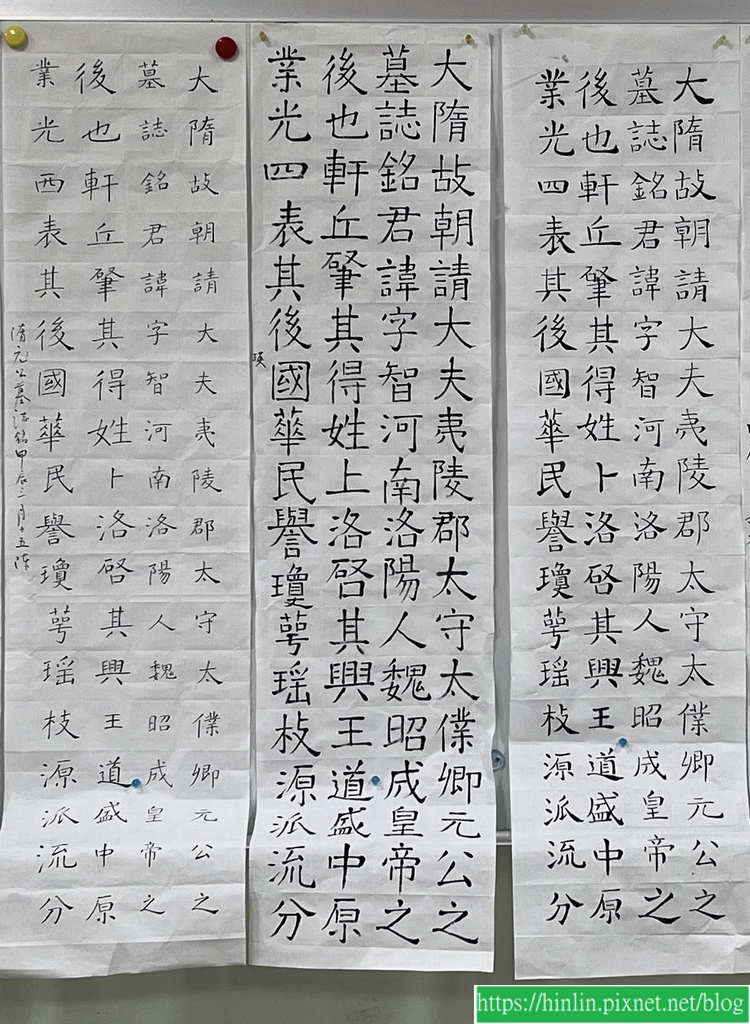 大隋故朝請大夫夷陵郡太守太僕卿元公之
墓誌銘君諱字智河南洛陽人魏昭成皇帝之
後也軒丘肇其得姓卜洛啓其興王道盛中原
業光四表其後國華民譽瓊萼瑶枝源派流分
大隋故朝請大夫夷陵郡太守太僕卿元公之
墓誌銘君諱字智河南洛陽人魏昭成皇帝之
後也軒丘肇其得姓上洛啓其興王道盛中原
業光四表其後國華民譽瓊萼瑶枝源派流分
大隋故朝請大夫夷陵郡太守太僕卿元公之
墓誌銘君諱字智河南洛陽人魏昭成皇帝之
後也軒丘肇其得姓卜洛啓其興王道盛中原
業光西表其後國華民譽瓊萼瑶枝源派流分
隋元公墓誌銘甲辰三月十五
https://hinlin.pixnet.net/blog